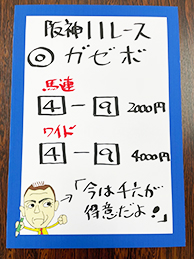 阪神11レース
◎ガゼボ
馬連
4-9 2000円
ワイド
4-9 4000円
→「今は千六が
得意だよ!」